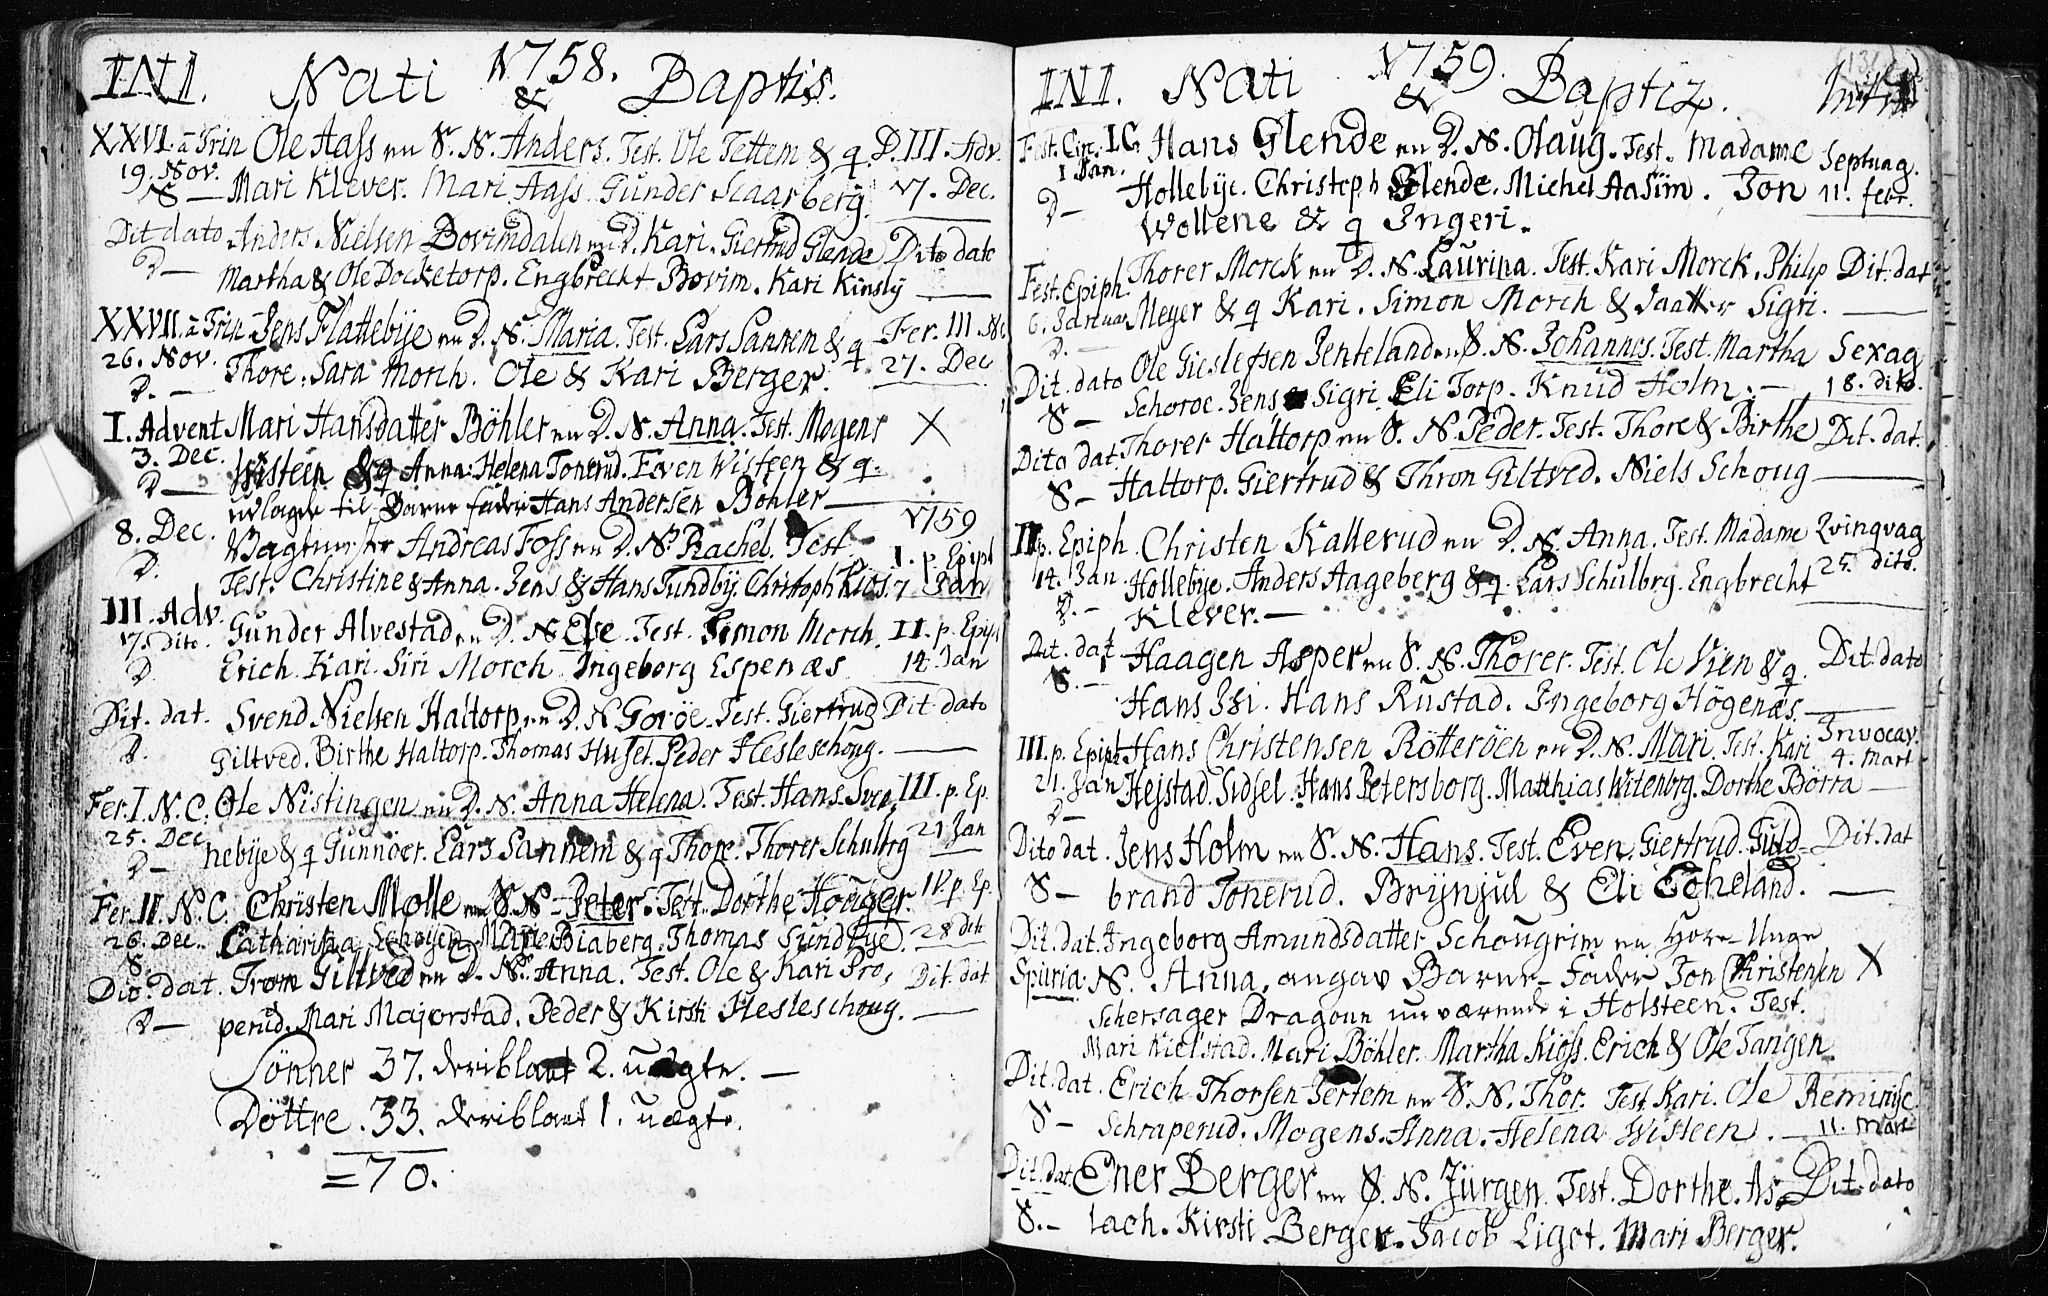 INI. Nati 1758. & Baptis.
XXVI. a Trin Ole Aass en S. N. Anders. Test. Ole Tettem & q. D. III. Adv.
19. Nov. S - Mari Klever. Mari Aass. Gunder Skaarberg. 17. Dec.
Dit dato Anders Nielsen Bovimdalen en D. Kari. Giertrud Glende Dito dato
D - Martha & Ole Docketorp. Engbrecht Bovim. Kari Kinsly
XXVII. a Trin Jens Flattebye en D. N. Maria. Test. Lars Sannem & q Fer. III. N.
26. Nov. D. - Thore. Sara Morch. Ole & Kari Berger. 27. Dec
I. Advent Mari Hansdatter Böhler en D. N. Anna. Test. Mogens X
3. Dec. D - Wisteen & q Anna Helena Tonerud. Even Wisteen & q.
udlagde til Barne fader Hans Andersen Böhler
8. Dec. Vagtmester Andreas Foss en D. N. Rachel. Test. 1759
D. Test. Christine & Anna. Jens & Hans Sundby. Christoph Kios. I. p. Epiph 7 Jan
III. Adv. Gunder Alvestad en D. N. Else. Test. Simon Morch. II. p. Epiph
17. Dito. D Erich. Kari. Siri Morch. Ingeborg Espenæs 14. Jan
Dit. dat. Svend Nielsen Haltorp en D. N. Goröe. Test. Giertrud Dit. dato
D. Giltved. Birthe Haltorp. Thomas Husel. Peder Hesleschoug.
Fer. I. N. C. Ole Nistingen en D. N. Anna Helena. Test. Hans Sven, III. p. Ep.
25. Dec D - nebye & q Gunnöer. Lars Sannem & q Thore. Thorer Schulbrg 21 Jan
Fer. II. N. C. Christen Molle en S. N. Peter. Test. Dorthe Houger. IV. p. Ep.
26. Dec. S. Catharina Schoyen. Mari Biaberg. Thomas Sundbye. 28 dito
Dito. dat. Tron Giltved en D. N. Anna. Test. Ole & Kari Pro, Dit. dat
D - perud. Mari Majorstad. Peder & Kirsti Hesleschoug.
Sönner 37. deriblant 2. uægte. -
Döttre. 33. deriblant 1. uægte.
= 70.
INI. Nati 1759. & Baptiz. Intr.
Fest. Circ. I C. Hans Glende en D. N. Olaug. Test. Madame Septuag.
1 Jan. D - Hollebye. Christoph Glende. Michel Aasim. Jon 11. febr.
Wollene & q Ingeri.
Fest. Epiph Thorer Morck en D. N. Laurina. Test. Kari Morck. Philip Dit. dat
6. Januar D. Meyer & q Kari. Simon Morch & Daatter Sigri.
Dit. dato Ole Gieslefsen Jenteland en S. N. Johannes. Test. Martha Sexag
S - Schoroe. Jens & Sigri. Eli Torp. Knud Holm. - 18. dito.
Dito dat Thorer Haltorp en S. N. Peder. Test. Thore & Birthe Dit. dat.
S - Haltorp. Giertrud & Thron Giltved. Niels Schoug
II p. Epiph. Christen Kallerud en D. N. Anna. Test. Madame Qvinqvag
14. Jan D. - Hollebye. Anders Aageberg & q. Lars Schulbrg. Engbrecht 25. dito.
Klever. -
Dit. dat Haagen Asper en S. N. Thorer. Test. Ole Vien & q Dit. dato
S. - Hans Isi. Hans Rustad. Ingeborg Högenæs.
III. p. Epiph Hans Christensen Rötteröen en D. N. Mari. Test. Kari Invocav.
21. Jan D - Hejstad. Sidsel. Hans Petersborg. Matthias Witenbrg. Dorthe Börra 4. Mart
Dito dat. Jens Holm en S. N. Hans. Test. Even. Giertrud. Guld- Dit. dat
S - brand Tonerud. Brynjul & Eli Echeland.
Dit. dat. Ingeborg Amundsdatter Schougrim en Hore-Unge
Spuria. N. Anna. angav Barne-Fader Jon Christensen X
Schersager Dragoun nu værende i Holsteen. Test.
Mari Kielstad. Mari Böhler. Martha Kioss. Erich & Ole Tangen
Dit. dat. Erich Thorsen Jertem en S. N. Thor. Test Kari. Ole Reminisc.
S - Schraperud. Mogens. Anna. Helena Wisteen. - 11. Mart
Dit. dat. Ener Berger en S. N. Jürgen. Test. Dorthe. As, Dit. dato
S. - lach. Kirsti Berger. Jacob Liget. Mari Berger.